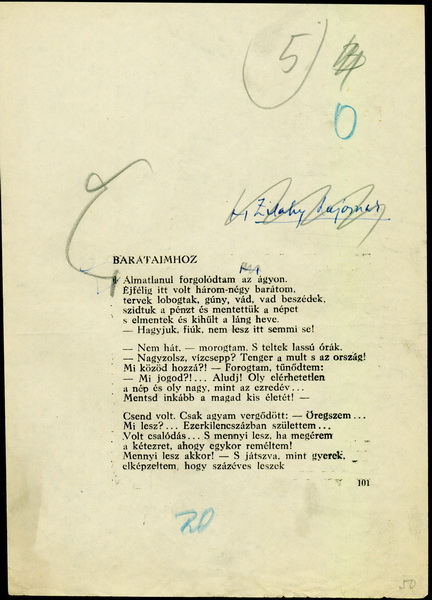 5
0
BARÁTAIMHOZ
Álmatlanul forgolódtam az ágyon.
Éjfélig itt volt három-négy barátom,
tervek lobogtak, gúny, vád, vad beszédek,
szidtuk a pénzt és mentettük a népet
s elmentek és kihült a láng heve.
— Hagyjuk, fiúk, nem lesz itt semmi se!
— Nem hát, — morogtam. S teltek lassú órák.
— Nagyzolsz, vízcsepp? Tenger a mult s az ország!
Mi közöd hozzá?! — Forogtam, tűnődtem:
— Mi jogod?!... Aludj! Oly elérhetetlen
a nép és oly nagy, mint az ezredév...
Mentsd inkább a magad kis életét! —
Csend volt. Csak agyam vergődött: — Öregszem...
Mi lesz?... Ezerkilencszázban születtem...
Volt csalódás... S mennyi lesz, ha megérem
a kétezret, ahogy egykor reméltem!
Mennyi lesz akkor! — S játszva, mint gyerek,
elképzeltem, hogy százéves leszek
101
20
50